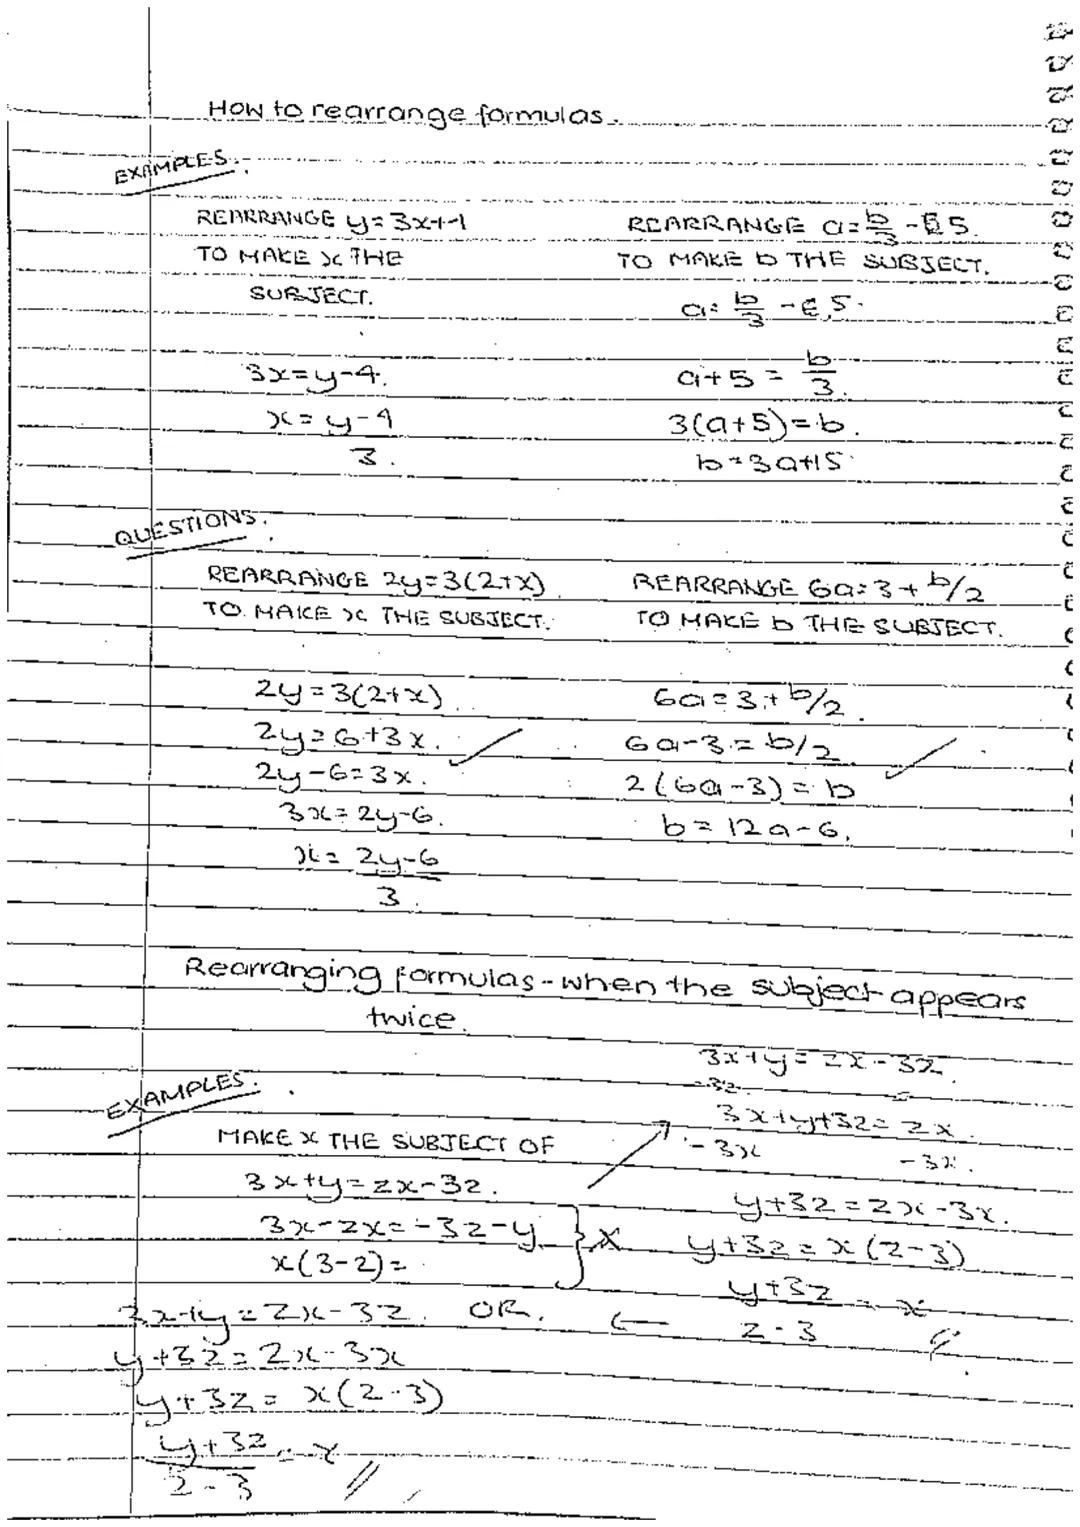 How to rearrange formulas.
EXAMPLES.
REARRANGE y=3x+4
TO MAKE x THE
SUBJECT.
3x=y-4.
x=y-4
3.
REARRANGE a=b/3 - 5.
TO MAKE b THE SUBJECT.
a=b/3 - 5.
a+5 = b/3.
3(a+5)=b.
b=3a+15
QUESTIONS.
REARRANGE 2y=3(2+x)
TO MAKE x THE SUBJECT.
2y=3(2+x)
2y=6+3x.
2y-6=3x.
3x=2y-6.
x=2y-6
3.
REARRANGE 6a=3+b/2
TO MAKE b THE SUBJECT.
6a=3+b/2.
6a-3=b/2
2(6a-3)=b
b=12a-6.
Rearranging formulas - when the subject appears
twice.
EXAMPLES.
MAKE x THE SUBJECT OF
3x+y=zx-3z.
3x-zx=-3z-y
x(3-z)=
3x+y=zx-3z. OR.
y+3z=zx-3x
y+3z=x(z-3)
y+3z = x
z-3
3x+y=zx-3z.
-3z
3x+y+3z=zx
-3x -3x.
y+3z=zx-3x.
y+3z=x(z-3)
y+3z = x
z-3